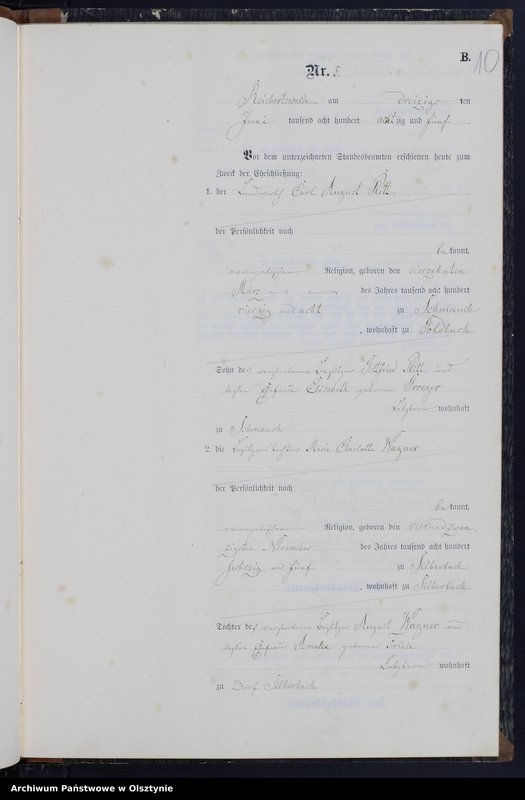 B.
10
Nr. 8.
Reichertswalde am dreizigs ten
Juni tausend acht hundert achtzig und fünf.
Vor dem unterzeichneten Standesbeamten erschienen heute zum
Zweck der Eheschließung:
1. der Landwirth Carl August Ritt,
der Persönlichkeit nach
be kannt,
evangelischer Religion, geboren den vierzehnten
März des Jahres tausend acht hundert
vierzig und acht zu Schmauch
, wohnhaft zu Goldbach
Sohn des verstorbenen Besitzer Gottfried Ritt und
dessen Ehefrau Elisabeth geborenen
Letztere wohnhaft
zu Schmauch
2. die Besitzers tochter Marie Charlotte Wagner
der Persönlichkeit nach
be kannt,
evangelischer Religion, geboren den vier und zwan
zigsten November des Jahres tausend acht hundert
sechzig und fünf zu Silberbach
, wohnhaft zu Silberbach
Tochter des verstorbenen Besitzer August Wagner und
dessen Ehefrau Amalie geborenen
Letztere wohnhaft
zu Dorf Silberbach
Archiwum Państwowe w Olsztynie